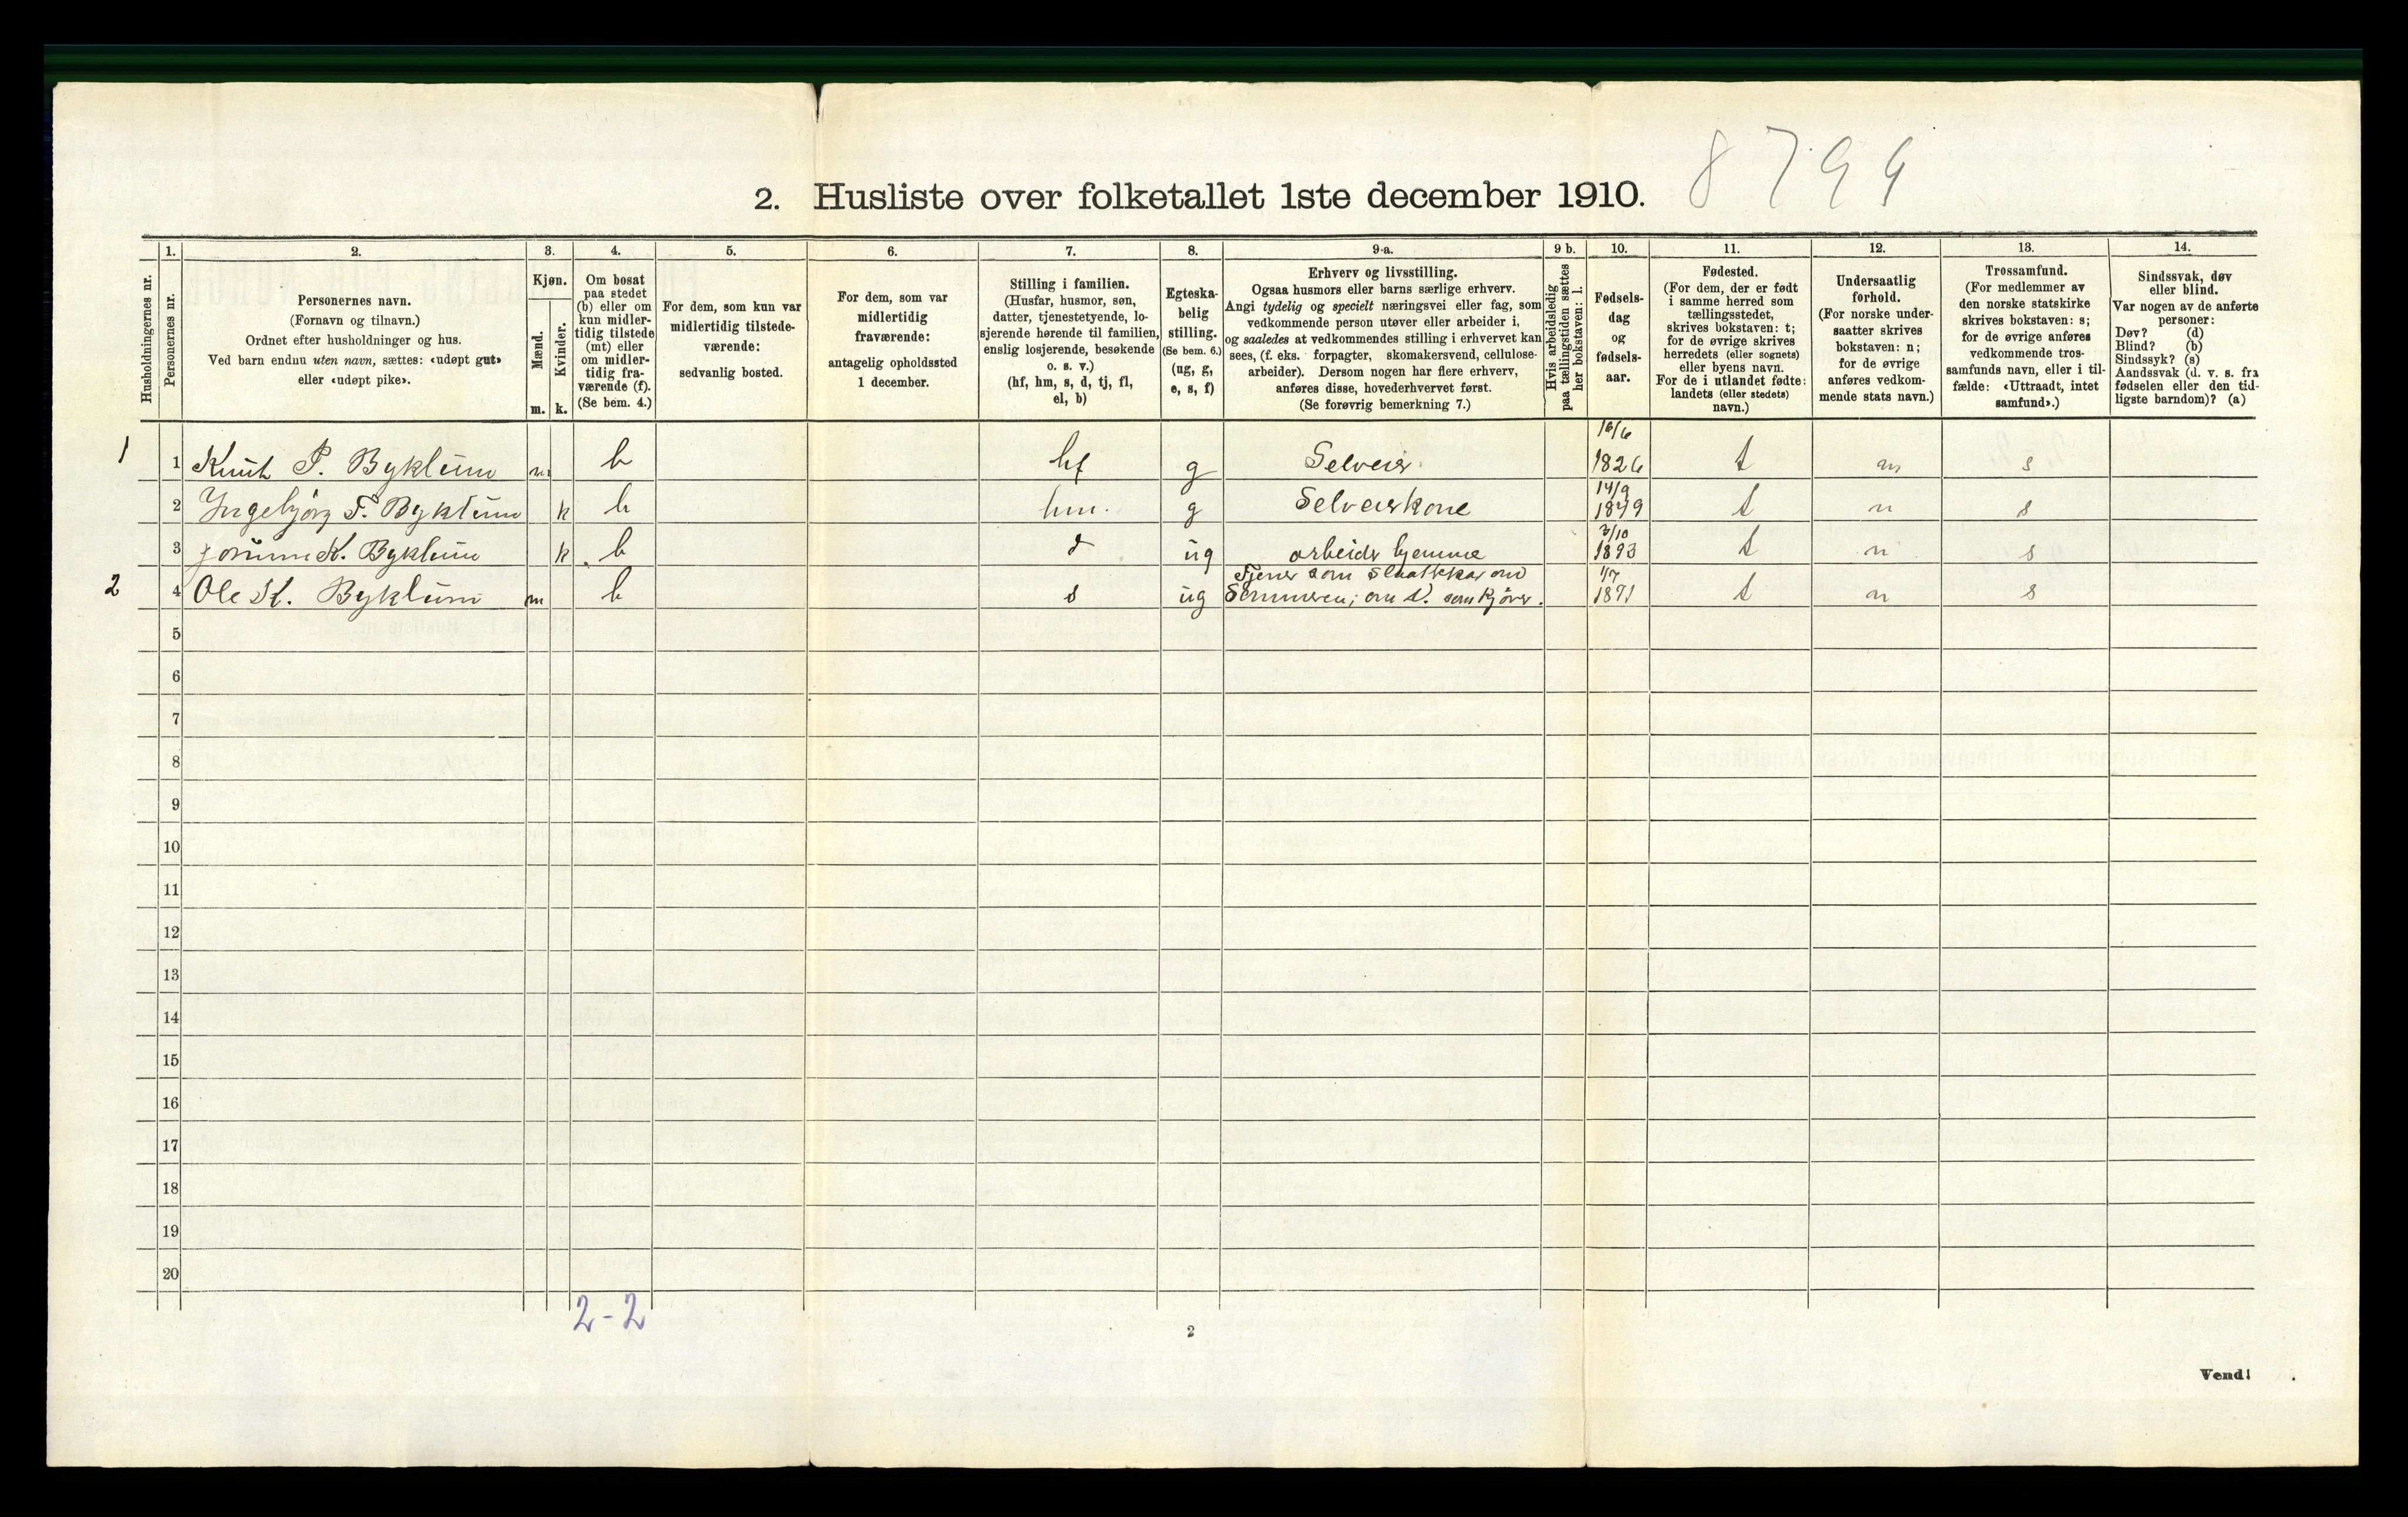 8794
2. Husliste over folketallet 1ste december 1910.
Husholdningernes nr.
1.
Personernes nr.
2.
Personernes navn.
(Fornavn og tilnavn.)
Ordnet efter husholdninger og hus.
Ved barn endnu uten navn, sættes: «udøpt gut»
eller «udøpt pike».
3.
Kjøn.
Mænd.
m.
Kvinder.
k.
4.
Om bosat
paa stedet
(b) eller om
kun midler-
tidig tilstede
(mt) eller
om midler-
tidig fra-
værende (f).
(Se bem. 4.)
5.
For dem, som kun var
midlertidig tilstede-
værende:
sedvanlig bosted.
6.
For dem, som var
midlertidig
fraværende:
antagelig opholdssted
1 december.
7.
Stilling i familien.
(Husfar, husmor, søn,
datter, tjenestetyende, lo-
sjerende hørende til familien,
enslig losjerende, besøkende
o. s. v.)
(hf, hm, s, d, tj, fl,
el, b)
8.
Egteska-
belig
stilling.
(Se bem. 6.)
(ug, g,
e, s, f)
9 a.
Erhverv og livsstilling.
Ogsaa husmors eller barns særlige erhverv.
Angi tydelig og specielt næringsvei eller fag, som
vedkommende person utøver eller arbeider i,
og saaledes at vedkommendes stilling i erhvervet kan
sees, (f. eks. forpagter, skomakersvend, cellulose-
arbeider). Dersom nogen har flere erhverv,
anføres disse, hovederhvervet først.
(Se forøvrig bemerkning 7.)
9 b.
Hvis arbeidsledig
paa tællingstiden sættes
her bokstaven: l.
10.
Fødsels-
dag
og
fødsels-
aar.
11.
Fødested.
(For dem, der er født
i samme herred som
tællingsstedet,
skrives bokstaven: t;
for de øvrige skrives
herredets (eller sognets)
eller byens navn.
For de i utlandet fødte:
landets (eller stedets)
navn.)
12.
Undersaatlig
forhold.
(For norske under-
saatter skrives
bokstaven: n;
for de øvrige
anføres vedkom-
mende stats navn.)
13.
Trossamfund.
(For medlemmer av
den norske statskirke
skrives bokstaven: s;
for de øvrige anføres
vedkommende tros-
samfunds navn, eller i til-
fælde: «Uttraadt, intet
samfund».)
14.
Sindssvak, døv
eller blind.
Var nogen av de anførte
personer:
Døv? (d)
Blind? (b)
Sindssyk? (s)
Aandssvak (d. v. s. fra
fødselen eller den tid-
ligste barndom)? (a)
1 1 Knut P. Byklum m b hf g Selveier 16/6 1826 t n s
2 Ingebjørg T. Byklum k b hm. g Selveierkone 14/9 1849 t n s
3 Jorunn K. Byklum k b d ug arbeider hjemme 3/10 1893 t n s
2 4 Ole K. Byklum m b s ug Tjener som slaattkar om
Sommeren; om V. som kjører. 1/7 1871 t n s
5
6
7
8
9
10
11
12
13
14
15
16
17
18
19
20
2-2
2
Vend!